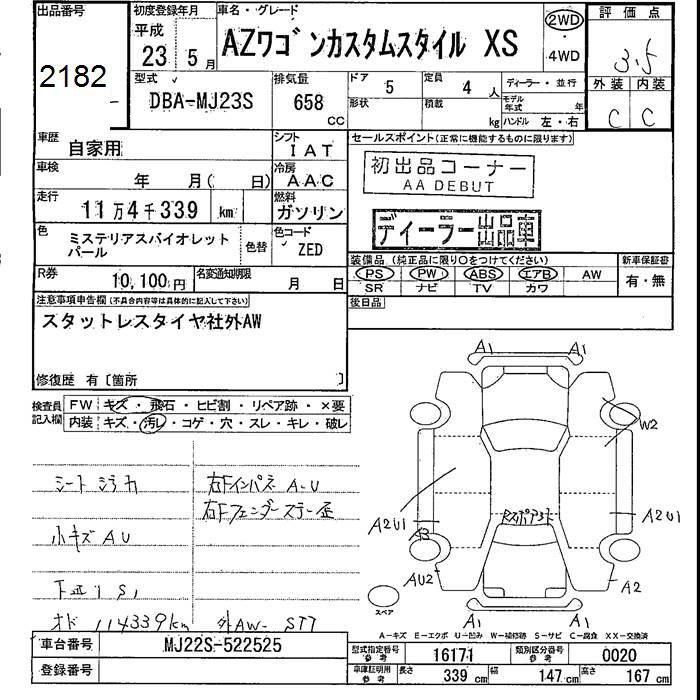 出品番号
2182
初度登録年月
平成
23 5月
車名・グレード
AZワゴンカスタムスタイル XS
2WD
4WD
評価点
3.5
外装 内装
C C
型式
DBA-MJ23S
排気量
658
CC
ドア 5
定員 4 人
形状
積載 kg
ディーラー・並行
モデル年式 年
ハンドル 左・右
車歴 自家用
シフト IAT
車検 年 月( 日)
冷房 AAC
走行 11万4千339 km
燃料 ガソリン
色 ミステリアスバイオレットパール
色替
色コード ZED
R券 10,100円
名変通知期限 月 日
セールスポイント(正常に機能するものに限ります)
初出品コーナー
AA DEBUT
ディーラー出品車
装備品 (純正品に限り○をつけてください)
PS PW ABS エアB AW
SR ナビ TV カワ
新車保証書
有・無
後日品
注意事項申告欄(不具合内容等は具体的に記入して下さい)
スタットレスタイヤ社外AW
修復歴 有〔箇所 〕
検査員記入欄
FW キズ・飛石・ヒビ割・リペア跡・×要
内装 キズ・汚レ・コゲ・穴・スレ・キレ・破レ
シート
右Fインパネ A-U
右Fフェンダーステー歪
小キズ AU
オド 114339km
外AW- STT
A1 A1
W2
A2U1
A2U1
A3
AU2
A2
スペア
A1 A1
A-キズ E-エクボ U-凹み W-補修跡 S-サビ C-腐食 XX-交換済
車台番号 MJ22S-522525
登録番号
型式指定番号 参考 16171
類別区分番号 参考 0020
車庫証明用 参考 長さ 339 cm 幅 147 cm 高さ 167 cm